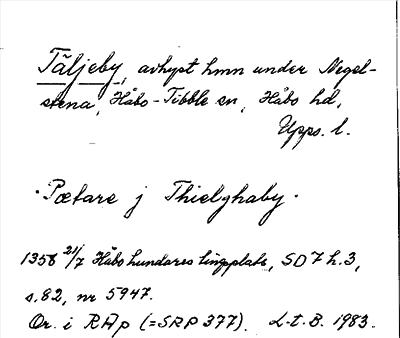 Täljeby, avhyst hmn under Negel-
stena, Håbo-Tibble sn, Håbo hd,
Upps. l.
"Pætare j Thielghaby"
1358 21/7 Håbo hundares tingsplats, SD 7 h.3,
s.82, nr 5947.
Or. i RAp (=SRP 377). L-t. B. 1983.